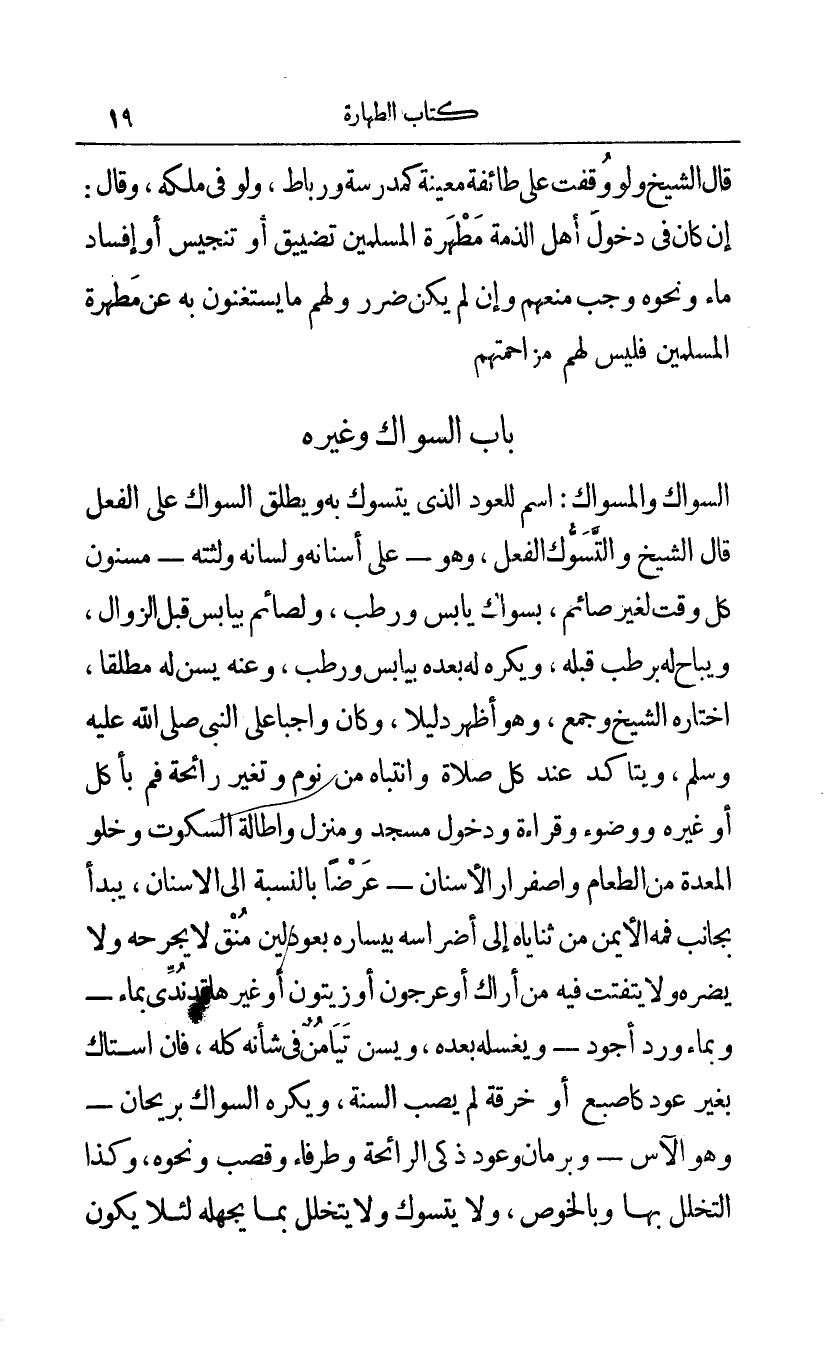 كتاب الطهارة ١٩
قال الشيخ ولو وُقفت على طائفة معينة كمدرسة ورباط ، ولو فى ملكه ، وقال :
إن كان فى دخول أهل الذمة مَطْهَرة المسلمين تضييق أو تنجيس أو إفساد
ماء ونحوه وجب منعهم وإن لم يكن ضرر ولهم ما يستغنون به عن مَطهرة
المسلمين فليس لهم مزاحمتهم
باب السواك وغيره
السواك والمسواك : اسم للعود الذى يتسوك به ويطلق السواك على الفعل
قال الشيخ والتَّسَوُّك الفعل ، وهو — على أسنانه ولسانه ولثته — مسنون
كل وقت لغير صائم ، بسواك يابس ورطب ، ولصائم بيابس قبل الزوال ،
ويباح له برطب قبله ، ويكره له بعده بيابس ورطب ، وعنه يسن له مطلقا ،
اختاره الشيخ وجمع ، وهو أظهر دليلا ، وكان واجبا على النبى صلى الله عليه
وسلم ، ويتاكد عند كل صلاة وانتباه من نوم وتغير رائحة فم بأكل
أو غيره ووضوء وقراءة ودخول مسجد ومنزل واطالة السكوت وخلو
المعدة من الطعام واصفرار الأسنان — عَرْضًا بالنسبة الى الاسنان ، يبدأ
بجانب فمه الأيمن من ثناياه إلى أضراسه بيساره بعود لين مُنْق لا يجرحه ولا
يضره ولا يتفتت فيه من أراك أو عرجون أو زيتون أو غيرها قد نُدِّى بماء —
وبماء ورد أجود — ويغسله بعده ، ويسن تَيَامُنٌ فى شأنه كله ، فان استاك
بغير عود كاصبع أو خرقة لم يصب السنة ، ويكره السواك بريحان —
وهو الآس — وبرمان وعود ذكى الرائحة وطرفاء وقصب ونحوه ، وكذا
التخلل بها وبالخوص ، ولا يتسوك ولا يتخلل بما يجهله لئلا يكون